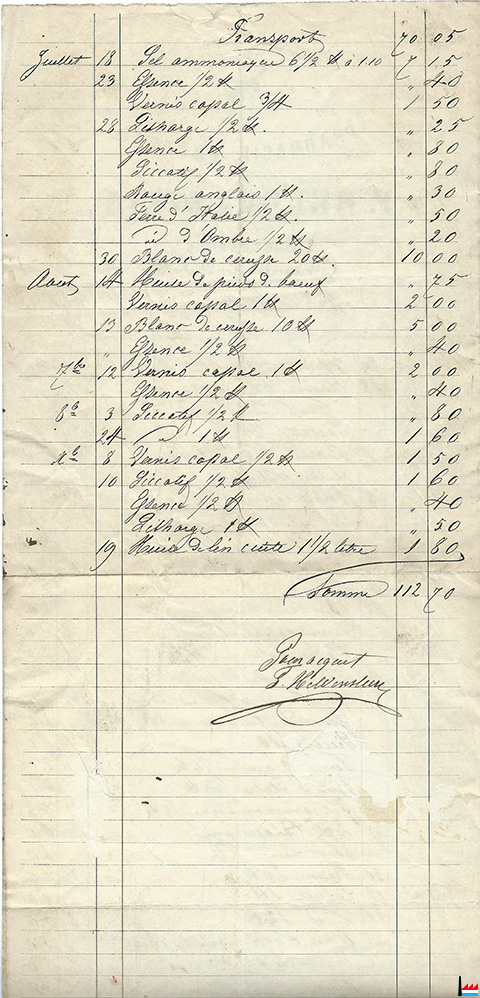 Transport 70 05
Juillet 18 Sel ammoniaque 6 1/2 ℔ à 1.10 7 15
23 Essence 1/2 ℔ " 40
Vernis copal 3/4 1 50
28 Litharge 1/2 ℔. " 25
Essence 1 ℔ " 80
Siccatif 1/2 ℔ " 80
Rouge anglais 1 ℔. " 30
Terre d'Italie 1/2 ℔. " 50
id d'Ombre 1/2 ℔ " 20
30 Blanc de ceruse 20 ℔. 10 00
Aout 14 Huile de pieds d. boeuf " 75
Vernis copal 1 ℔ 2 00
13 Blanc de ceruse 10 ℔ 5 00
" Essence 1/2 ℔ " 40
7bre 12 Vernis copal 1 ℔ 2 00
Essence 1/2 ℔ " 40
8b 3 Siccatif 1/2 ℔ " 80
24 id 1 ℔ 1 60
8 Vernis copal 1/2 ℔ 1 50
10 Siccatif 1/2 ℔ 1 60
Essence 1/2 ℔ " 40
Litharge 1 ℔ " 50
19 Huile de lin cuite 1 1/2 litre 1 80
Somme 112 70
Pour acquit